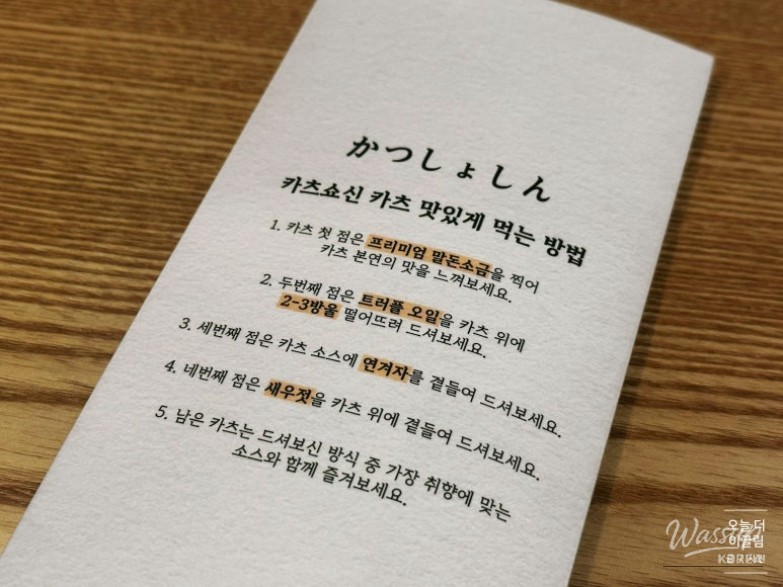 かつしょしん
카츠쇼신 카츠 맛있게 먹는 방법
1. 카츠 첫 점은 프리미엄 말돈소금을 찍어
카츠 본연의 맛을 느껴보세요.
2. 두번째 점은 트러플 오일을 카츠 위에
2-3방울 떨어뜨려 드셔보세요.
3. 세번째 점은 카츠 소스에 연겨자를 곁들여 드셔보세요.
4. 네번째 점은 새우젓을 카츠 위에 곁들여 드셔보세요.
5. 남은 카츠는 드셔보신 방식 중 가장 취향에 맞는
소스와 함께 즐겨보세요.
오늘 더
KOREAN